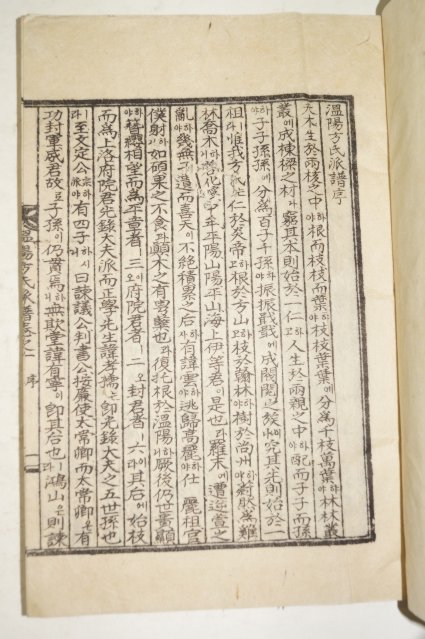 溫陽方氏派譜序
夫木生於兩核之中하야根而枝枝而葉하야枝枝葉葉에分爲千枝萬葉하야林林叢
叢에成棟樑之材나窮其本則始於一仁하고人生於兩親之中하야配而子子而孫
하야子子孫孫에分爲百子千孫하야振振戢戢에成閥閱이나究其先則始於一
祖라惟我方氏仁於炎帝하고根於方山하고枝於翰林하야樹於尙州하야蔚然爲雞
林喬木하니平陽山陽平山海上伊等君이是也라羅末에遭逆萱之
亂하야幾無遺而喜天이不絶積累之后하사有諱雲逃歸高麗하야仕麗祖官
僕射하니如碩果之不食顚木之有蘖也라復托根於溫陽하야厥後仍世
簪纓相望而爲平章者三이오府院君者二오封君者六이라其后에始枝
而爲上洛府院君光錄大夫派而正學先生諱孝孺는卽光錄大夫之五世孫也
라至文定公派하야有四子하시니曰諫議公判書公按廉使太常卿而太常卿은有
功封軍威君故로子孫이仍貫焉하니無欺堂諱有寧이卽其后也라鴻山은則諫
溫陽方氏派譜卷之一 序